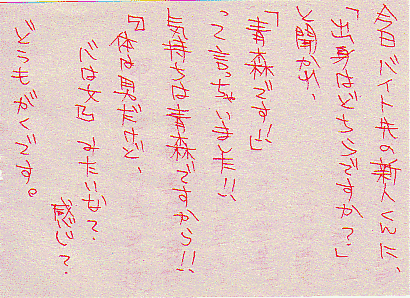 今日バイト先の新人くんに、
「出身はどちらですか？」
と聞かれ、
「青森です!!」
って言っちゃいました!!
気持ちは青森ですから!!
『体は
心は みたいな？
感じ？
どうもがくです。